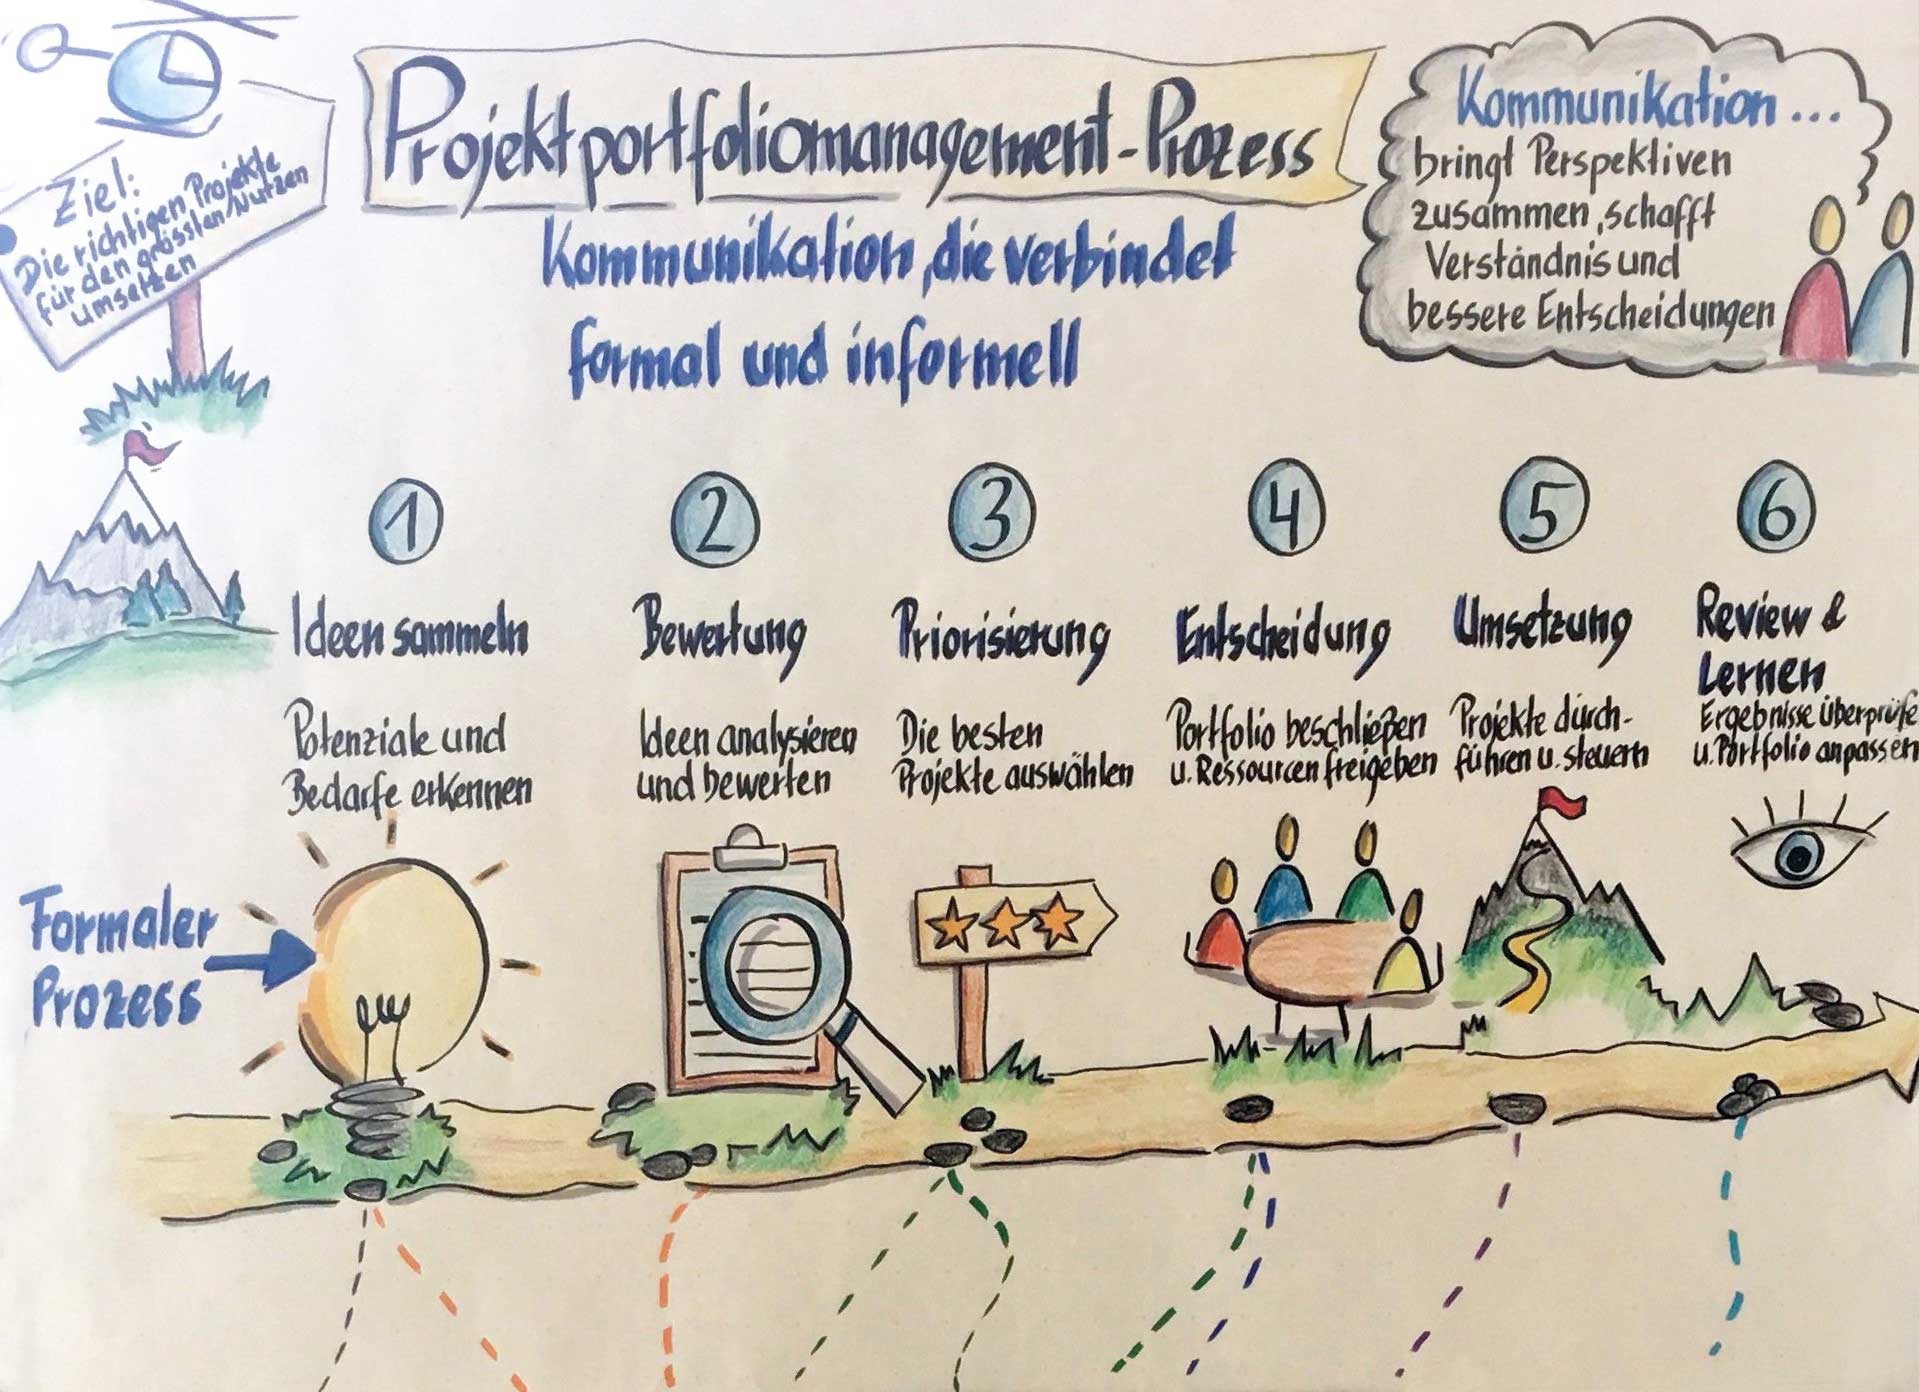 Projektportfoliomanagement-Prozess
Kommunikation, die verbindet
formal und informell
Ziel:
Die richtigen Projekte
für den grössten Nutzen
umsetzen
Kommunikation...
bringt Perspektiven
zusammen, schafft
Verständnis und
bessere Entscheidungen
1
Ideen sammeln
Potenziale und
Bedarfe erkennen
2
Bewertung
Ideen analysieren
und bewerten
3
Priorisierung
Die besten
Projekte auswählen
4
Entscheidung
Portfolio beschließen
u. Ressourcen freigeben
5
Umsetzung
Projekte durch-
führen u. steuern
6
Review &
Lernen
Ergebnisse überprüfe
u. Portfolio anpassen
Formaler
Prozess